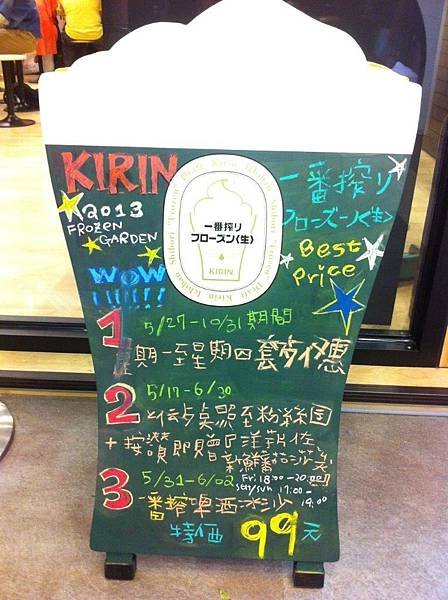 KIRIN
2013
FROZEN
GARDEN
WOW
!!!!!!
Ichiban Shibori "Frozen Draft" Kirin Ichiban Shibori "Frozen Draft" Kirin
一番搾り
フローズン〈生〉
KIRIN
一番搾り
フローズン〈生〉
Best
Price
1 5/27-10/31期間
星期一至星期四套夯優惠
2 5/17-6/30
上傳桌照至粉絲団
+按讚即贈『洋菰佐
新鮮蕃茄莎莎』
3 5/31-6/02 Fri 18:00-20:00
Sat/Sun 17:00-
19:00
一番搾啤酒冰沙
特価 99元